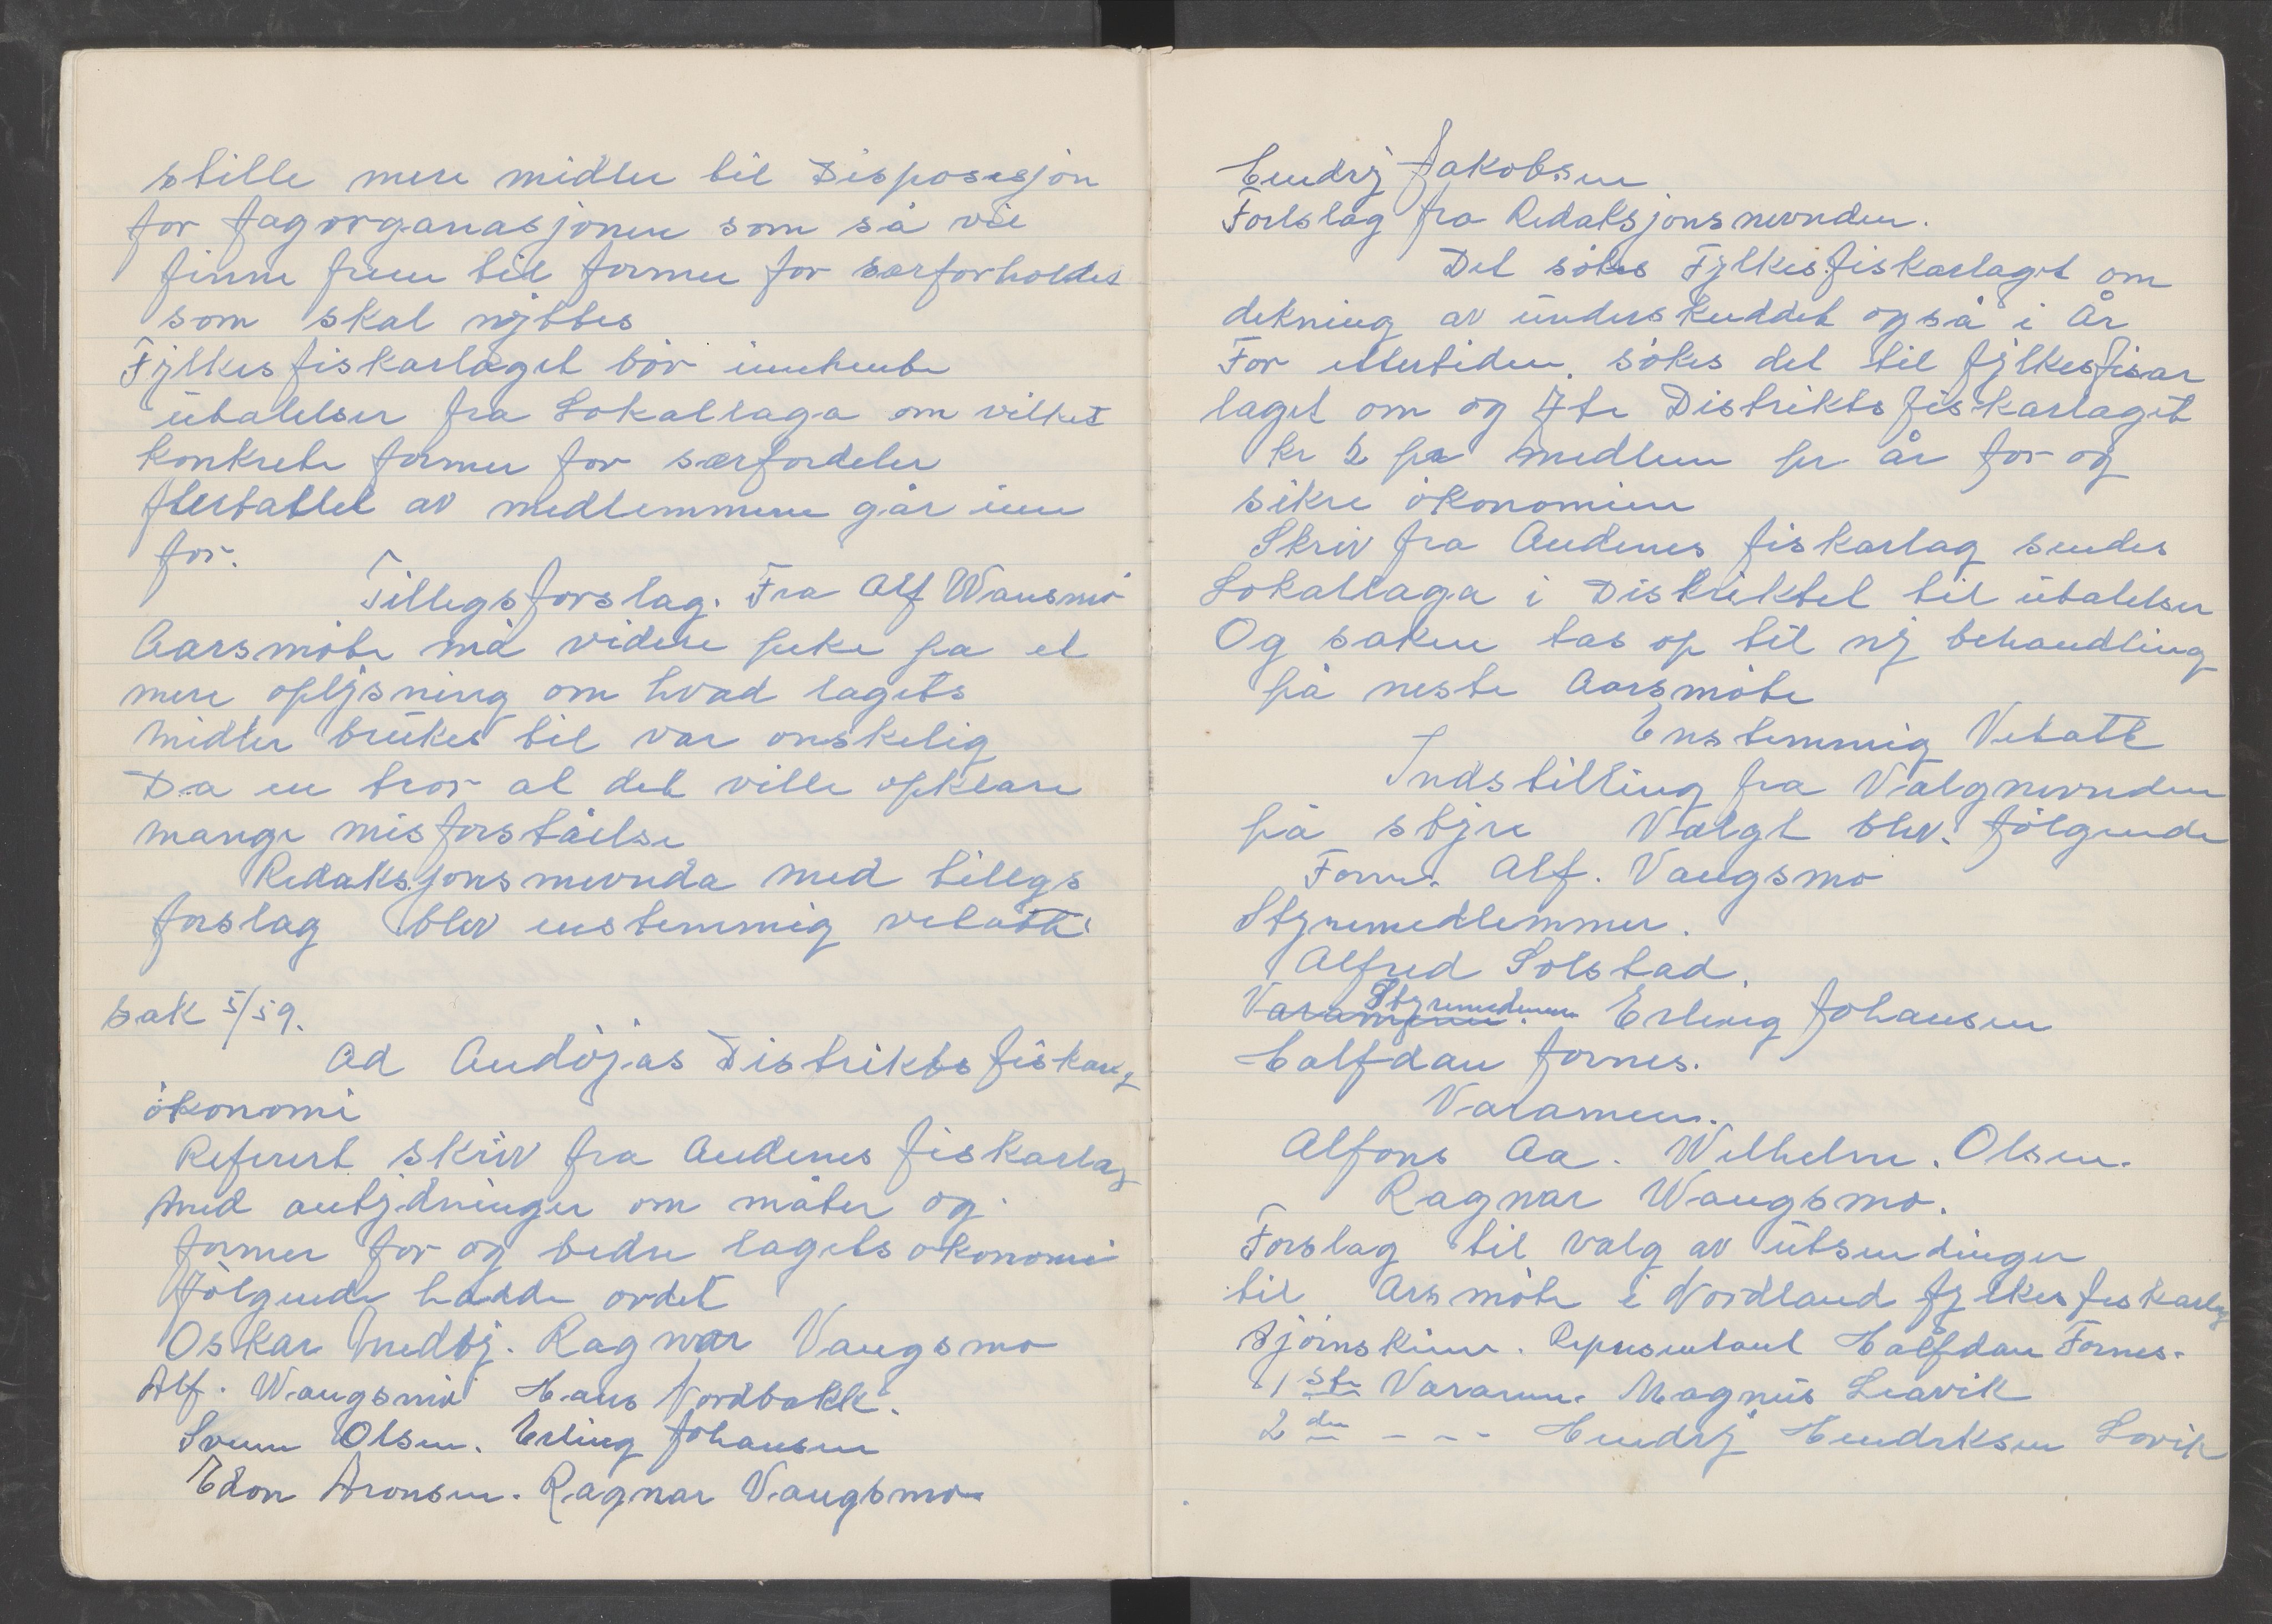 stille mere midler til Disposisjon
for fagorganasjonen som så vil
finne frem til former for særforholdet
som skal nyttes
Fylkesfiskarlaget bör innhente
utalelser fra Lokallaga om vilket
konkrete former for særfordeler
flertallet av medlemmene går inn
for.
Tillegsforslag. Fra Alf Wansmö
Aarsmöte må videre peke pa et
mere oplysning om hvad lagets
midler brukes til var onskelig
Da en tror at det ville opklare
mange misforståelse
Redaksjonsnevnda med tillegs
forslag blev enstemmig vetatt
sak 5/59.
Ad Andöjas Distrikts fiskarlag
ökonomi
Referert skriv fra Andenes fiskarlag
med antydninger om måter og
former for og bedre lagets okonomi
fölgende hadde ordet
Oskar Medby. Ragnar Vangsmo
Alf. Wangsmö Hans Nordbakk.
Svenn Olsen. Erling Johansen
Edon Aronsen. Ragnar Vangsmo
Hendry Jakobsen
Forlslag fra Redaksjonsnevnden.
Det sökes Fylkesfiskarlaget om
dekning av underskuddet også i År
For ettertiden sökes det til fylkesfisar
laget om og yte Distriktsfiskarlaget
kr 2 pa medlem pr år for og
sikre ökonomien
Skriv fra Andenes fiskarlag sendes
Lokallaga i Distriktet til utalelser
Og saken tas op til ny behandling
på neste Aarsmöte
Enstemmig Vetatt
Indstilling fra Valgnevnden
på styre Valgt blev. fölgende
Form. Alf. Vangsmo
Styremedlemmer.
Alfred Solstad.
Varamenn. Styremedlem Erling Johansen
Halfdan fornes.
Varamenn.
Alfons Aa. Wilhelm. Olsen.
Ragnar Wangsmo.
Forslag til valg av utsendinger
til Årsmöte i Nordland fylkes fiskarlag
Sjömskinn. Representant Halfdan Fornes.
1 ste Vararm. Magnus Leavik
2 den - - - Hendry Hendrksen Lovik